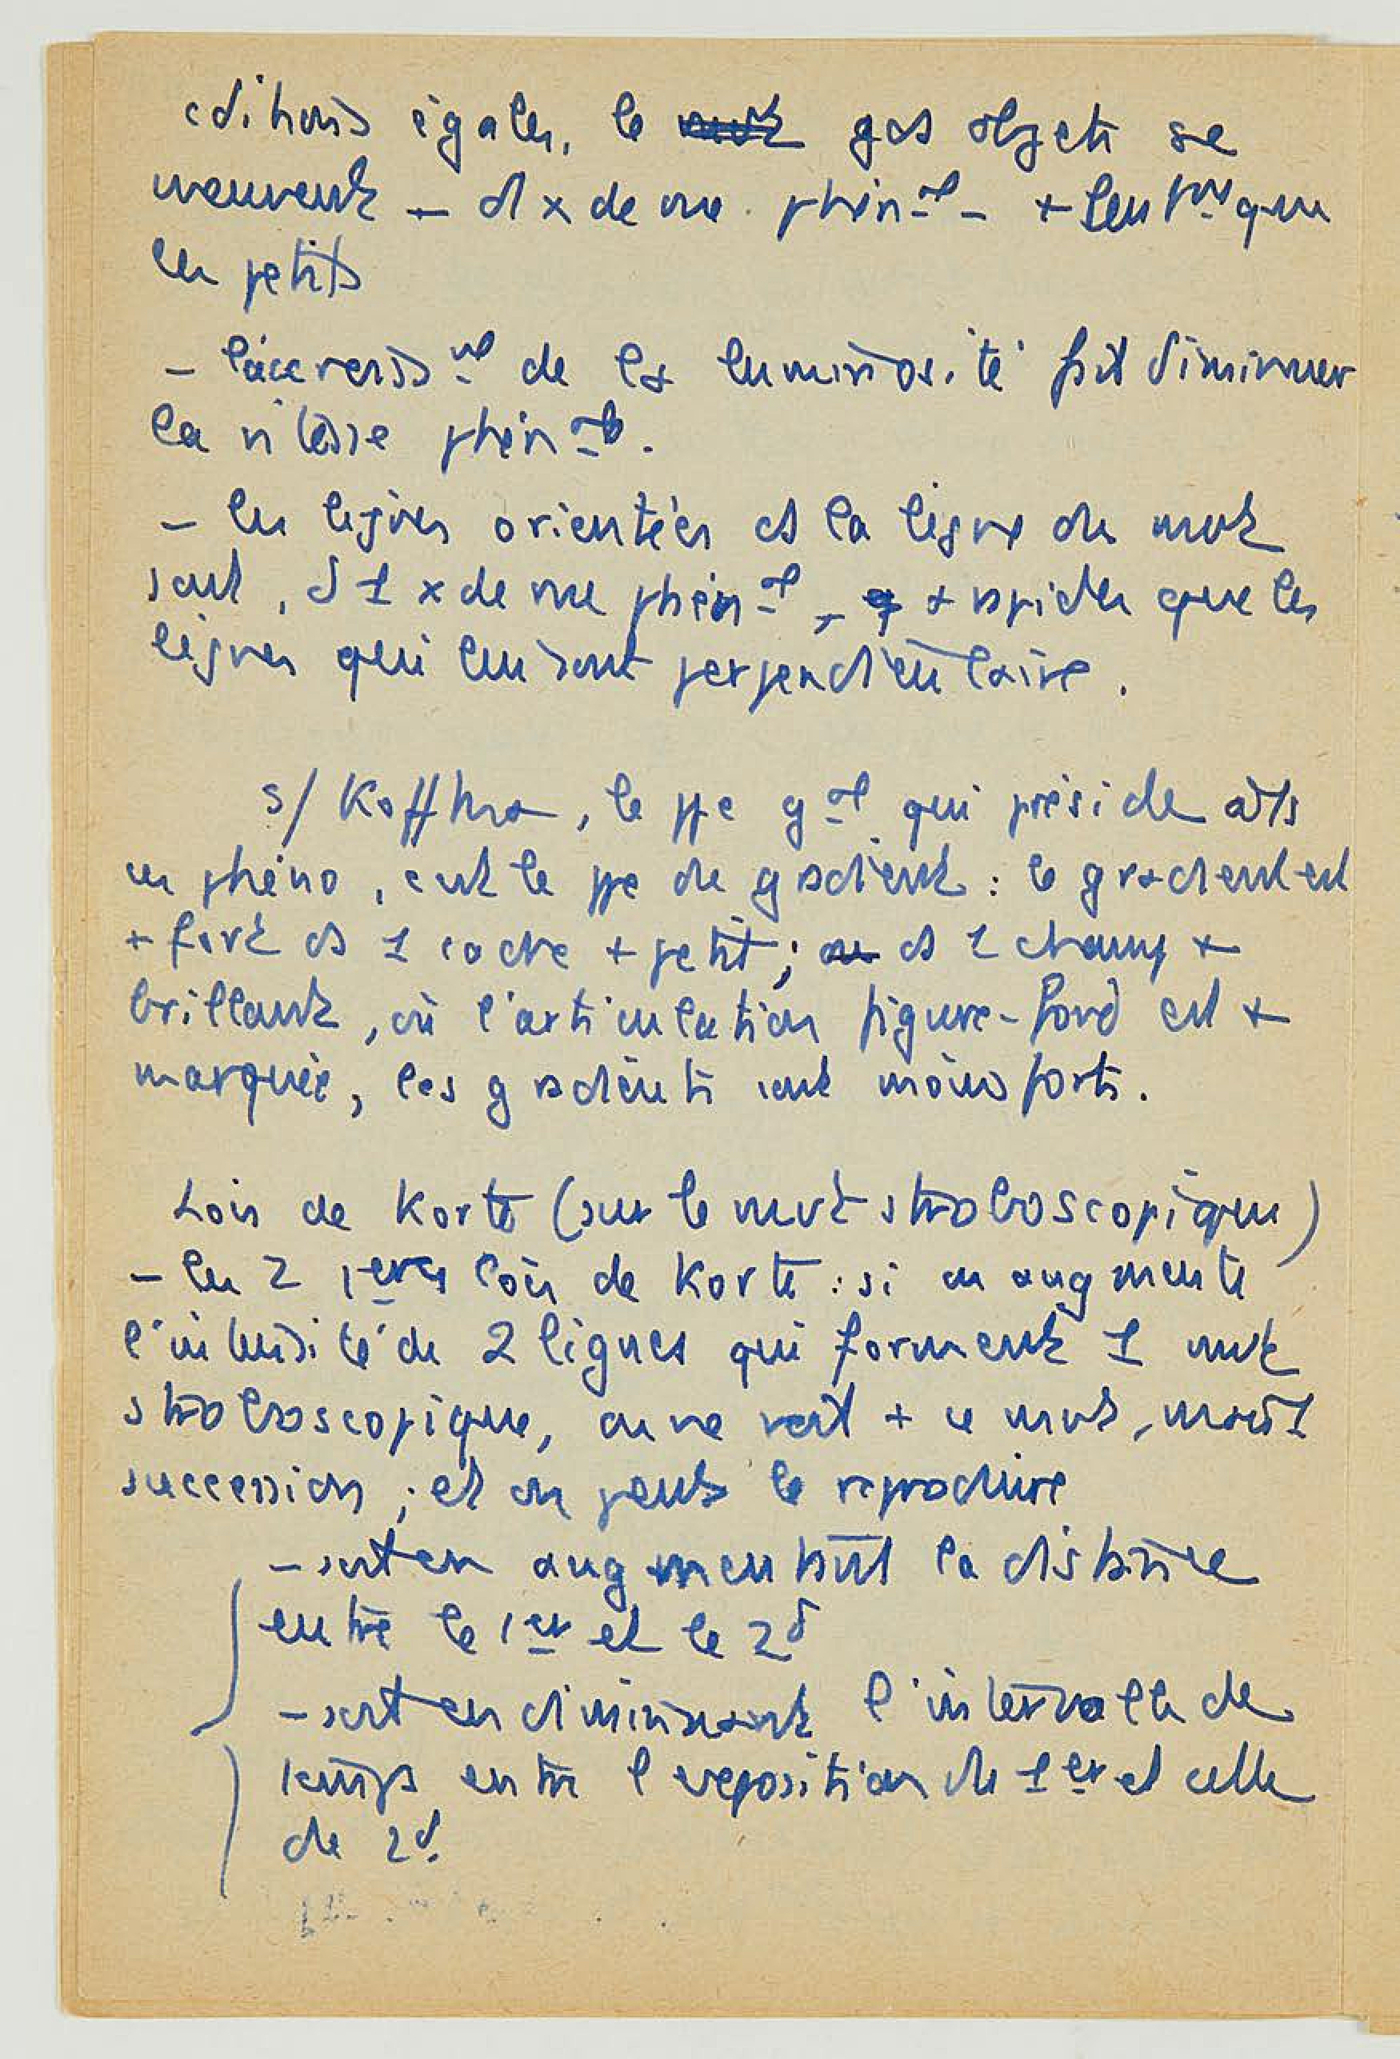 cditions égales, le gds objets se
meuvent – d'1 x de vue phén-al – + lent mt que
les petits
– l'accroiss-mt de la luminosité fait diminuer
la vitesse phén-ale.
– les lignes orientées ds la ligne du mvt
sont, d'1 x de vue phén-al, + rapides que les
lignes qui lui sont perpendiculaire.
s/ Koffka, le ppe g-al qui préside à ts
ces phéno, c'est le ppe de gradient : le gradient est
+ fort ds 1 cadre + petit ; ds 1 champ +
brillant, où l'articulation figure-fond est +
marquée, les gradients sont moins forts.
Lois de Korte (sur le mvt stroboscopique)
– les 2 1ères lois de Korte : si on augmente
l'intensité de 2 lignes qui forment 1 mvt
stroboscopique, on ne voit + ce mvt, mais 1
succession ; et on peut le reproduire
– soit en augmentant la distance
entre le 1er et le 2d
– soit en diminuant l'intervalle de
temps entre l'exposition de 1er et celle
de 2d.